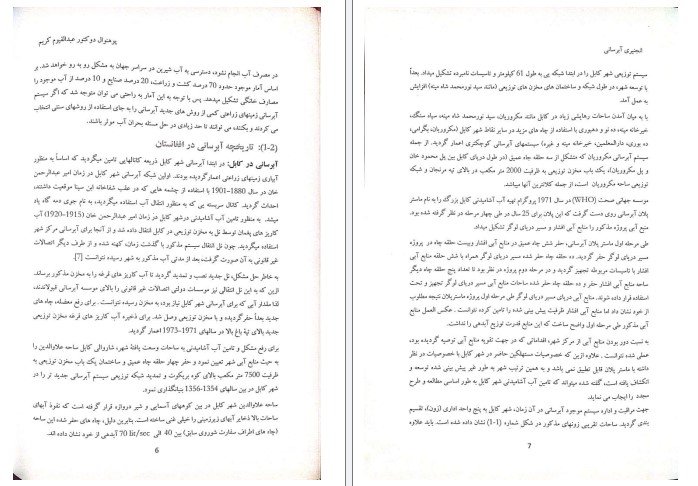 پوهنوال دوکتور عبدالقیوم کریم
در مصرف آب انجام نشود، دسترسی به آب شیرین در سراسر جهان به مشکل رو به رو خواهد شد. بر
اساس آمار موجود حدود 70 درصد کشت و زراعت، 20 درصد صنایع و 10 درصد از آب موجود را
مصارف خانگی تشکیل میدهد. پس با توجه به این آمار به راحتی می توان متوجه شد که اگر سیستم
آبرسانی زمینهای زراعتی کمی از روش های جدید آبرسانی را به جای استفاده از روشهای سنتی انتخاب
می کردند و بکنند، می توانند تا حد زیادی در حل مسئله بحران آب موثر باشند.
(1-2): تاریخچه آبرسانی در افغانستان
آبرسانی در کابل: در ابتدا آبرسانی شهر کابل ذریعه کانالهایی تامین میگردید که اساساً به منظور
آبیاری زمینهای زراعتی اعمارگردیده بودند. اولین شبکه آبرسانی شهر کابل در زمان امیر عبدالرحمن
خان در سال 1880–1901 با استفاده از چشمه هایی که در عقب شفاخانه ابن سینا موقعیت داشتند،
احداث گردید. کانال سربسته یی که به منظور انتقال آب استفاده میگردید، به نام جوی دمه گاه یاد
میشد. به منظور تامین آب آشامیدنی درشهر کابل در زمان امیر عبدالرحمن خان (1915–1920) آب
کاریز های پغمان توسط نل به مخزن توزیعی در کابل انتقال داده شد و از آنجا برای آبرسانی مرکز شهر
استفاده میگردید. چون نل انتقال سیستم مذکور با گذشت زمان، کهنه شده و از طرف دیگر اتصالات
غیر قانونی به آن صورت گرفت، بعد از مدتی آب مذکور به شهر رسیده نتوانست [7].
به خاطر حل مشکل، نل جدید نصب و تمدید گردید تا آب کاریز های قرغه را به مخزن مذکور برساند.
ازین که به این نل انتقالی نیز موسسات دولتی اتصالات غیر قانونی را بالای موسسه آبرسانی قبولاندند،
لذا مقدار آبی که برای آبرسانی شهر کابل نیاز بود، به مخزن رسیده نتوانست. برای رفع معضله، چاه های
جدید بعداً حفر گردیده و با مخزن توزیعی وصل شد. برای ذخیره آب کاریز های قرغه مخزن توزیعی
جدید بالای تپهٔ باغ بالا در سالهای 1971–1973 اعمار گردید.
برای رفع مشکل و تامین آب آشامیدنی به ساحات وسعت یافتهٔ شهر، شاروالی کابل ساحه علاوالدین را
به حیث منابع آبی شهر تعیین نمود و حفر چهار حلقه چاه عمیق و ساختمان یک باب مخزن توزیعی به
ظرفیت 7500 متر مکعب بالای کوه بریکوت و تمدید شبکه توزیعی سیستم آبرسانی جدید تر را در
شهر کابل در بین سالهای 1354-1356 بنیانگذاری نمود.
ساحه علاوالدین شهر کابل در بین کوههای آسمایی و شیر دروازه قرار گرفته است که نفوذ آبهای
ساحات بالا ذخایر آبهای زیرزمینی را خیلی غنی ساخته است. بنابرین دلیل، چاه های حفر شده این ساحه
(چاه های اطراف سفارت شوروی سابق) بین 40 الی 70 lit/sec آبدهی از خود نشان داده اند.
6
انجنیری آبرسانی
سیستم توزیعی شهر کابل را در ابتدا شبکه یی به طول 61 کیلومتر و تاسیسات نامبرده تشکیل میداد. بعداً
با توسعه شهر، در طول شبکه و ساختمان های مخزن های توزیعی (مانند سید نورمحمد شاه مینه) افزایش
به عمل آمد.
با به میان آمدن ساحات رهایشی زیاد در کابل مانند مکروریان، سید نورمحمد شاه مینه، سیاه سنگ،
خیرخانه مینه، ده نو و دهبوری با استفاده از چاه های مزید در سایر نقاط شهر کابل (مکروریان، بگرامی،
ده بوری، دارالمعلمین، خیرخانه مینه و غیره) سیستمهای آبرسانی کوچکتری اعمار گردید. از جمله
سیستم آبرسانی مکروریان که متشکل از سه حلقه چاه عمیق (در طول دریای کابل بین پل محمود خان
و پل مکروریان)، یک باب مخزن توزیعی به ظرفیت 2000 متر مکعب در بالای تپه مرنجان و شبکه
توزیعی ساحه مکروریان است، از جمله کلانترین آنها میباشد.
موسسه جهانی صحت (WHO) در سال 1971 پروگرام تهیه آب آشامیدنی کابل بزرگ را به نام ماستر
پلان آبرسانی روی دست گرفت که این پلان برای 25 سال در طی چهار مرحله در نظر گرفته شده بود.
منبع آبی پروژه مذکور را منابع آبی افشار و مسیر دریای لوگر تشکیل میداد.
طی مرحله اول ماستر پلان آبرسانی، حفر شش چاه عمیق در منابع آبی افشار وبیست حلقه چاه در پروژه
مسیر دریای لوگر حفر گردید. ده حلقه چاه حفر شده مسیر دریای لوگر همراه با شش حلقه منابع آبی
افشار با تاسیسات مربوطه تجهیز گردید و در مرحله دوم پروژه در نظر بود تا تعداد پنج حلقه چاه دیگر
ساحه منابع آبی افشار حفر و ده حلقه چاه حفر شده ساحات منابع آبی مسیر دریای لوگر تجهیز و تحت
استفاده قرار داده شوند. منابع آبی مسیر دریای لوگر طی مرحله اول پروژه ماستر پلان نتیجه مطلوب
از خود نشان داد اما منابع آبی افشار ظرفیت پیش بینی شده را تامین کرده نتوانست. عکس العمل منابع
آبی مذکور طی مرحله اول واضح ساخت که این منابع قدرت توزیع آبدهی را نداشت.
به نسبت دور بودن منابع آبی از مرکز شهر، اقداماتی که در جهت تقویه منابع آبی توصیه گردیده بود،
عملی شده نتوانست. علاوه ازین که خصوصیات مستهلکین حاضر در شهر کابل با خصوصیات در نظر
داشته با ماستر پلان قابل تطبیق نمی باشد و به همین ترتیب شهر به طور غیر پیش بینی شده توسعه و
انکشاف یافته است، گفته شده میتواند که تامین آب آشامیدنی شهر کابل به طور اساسی مطالعه و طرح
مجدد را ایجاب می نماید.
جهت مراقبت و اداره سیستم موجود آبرسانی در آن زمان، شهر کابل به پنج واحد اداری (زون)، تقسیم
بندی گردید. ساحات تقریبی زونهای مذکور در شکل شماره (1-1) نشان داده شده است. باید علاوه
7